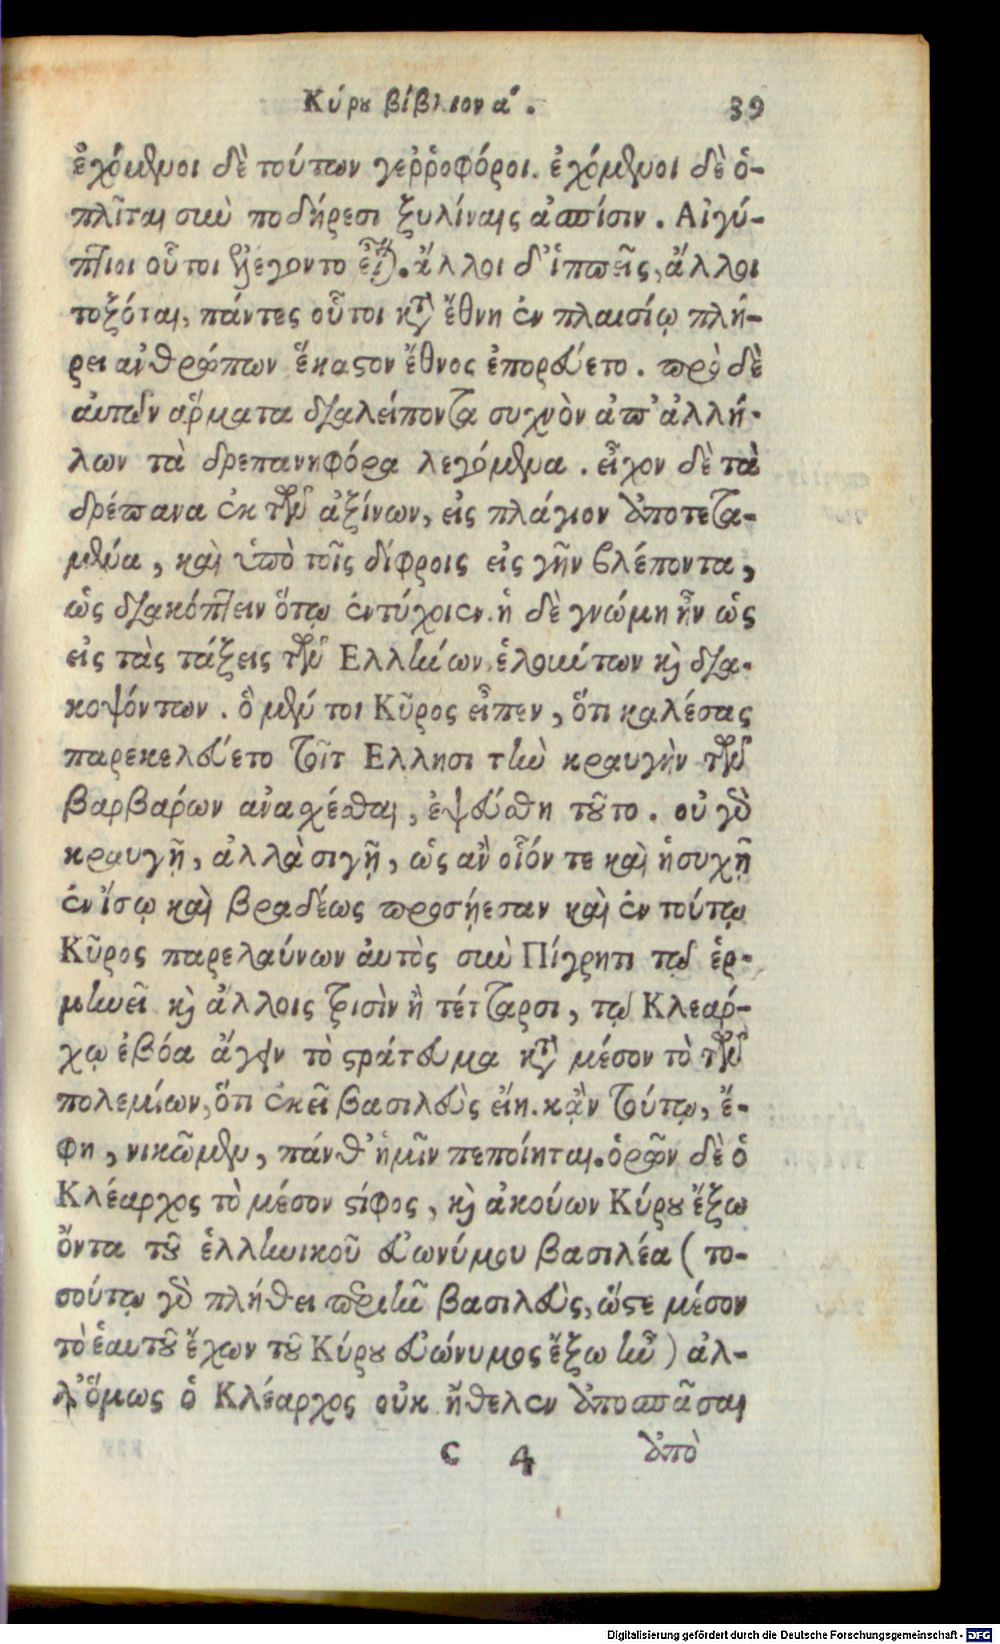 Κύρου βίβλιον α. 39
ἐχόμενοι δὲ τούτων γεῤῥοφόροι. ἐχόμενοι δὲ ὁ-
πλῖται σὺν ποδήρεσι ξυλίναις ἀσπίσιν. Αἰγύ-
πτιοι οὗτοι ἐλέγοντο εἶναι. ἄλλοι δ' ἱππεῖς, ἄλλοι
τοξόται, πάντες οὗτοι κατὰ ἔθνη ἐν πλαισίῳ πλή-
ρει ἀνθρώπων ἕκαστον ἔθνος ἐπορεύετο. πρὸ δὲ
αὐτῶν ἅρματα διαλείποντα συχνὸν ἀπ' ἀλλή-
λων τὰ δρεπανηφόρα λεγόμενα. εἶχον δὲ τὰ
δρέπανα ἐκ τῶν ἀξίνων, εἰς πλάγιον ἀποτετα-
μένα, καὶ ὑπὸ τοῖς δίφροις εἰς γῆν βλέποντα,
ὡς διακόπτειν ὅτῳ ἐντύχοιεν. ἡ δὲ γνώμη ἦν ὡς
εἰς τὰς τάξεις τῶν Ελλήνων ἐλσώντων καὶ δια-
κοψόντων. ὃ μέν τοι Κῦρος εἶπεν, ὅτι καλέσας
παρεκελεύετο τοῖς Ελλησι τὴν κραυγὴν τῶν
βαρβάρων ἀνασχέσθαι, ἐψεύσθη τοῦτο. οὐ γὰρ
κραυγῇ, ἀλλὰ σιγῇ, ὡς ἂν οἷόν τε καὶ ἡσυχῇ
ἐν ἴσῳ καὶ βραδέως προσῄεσαν καὶ ἐν τούτῳ
Κῦρος παρελαύνων αὐτὸς σὺν Πίγρητι τῷ ἑρ-
μηνεῖ καὶ ἄλλοις τρισὶν ἢ τέτταρσι, τῷ Κλεάρ-
χῳ ἐβόα ἄγειν τὸ στράτευμα κατὰ μέσον τὸ τῶν
πολεμίων, ὅτι ἐκεῖ βασιλεὺς εἴη. κἂν τούτῳ, ἔ-
φη, νικῶμεν, πάνθ' ἡμῖν πεποίηται. ὁρῶν δὲ ὁ
Κλέαρχος τὸ μέσον στίφος, καὶ ἀκούων Κύρου ἔξω
ὄντα τοῦ ἑλληνικοῦ εὐωνύμου βασιλέα (το-
σούτῳ γὰρ πλήθει περιῆν βασιλεὺς, ὥστε μέσον
τὸ ἑαυτοῦ ἔχων τοῦ Κύρου εὐώνυμος ἔξω ἦν) ἀλ-
λ' ὅμως ὁ Κλέαρχος οὐκ ἤθελεν ἀποσπᾶσαι
C 4 ἀπὸ
Digitalisierung gefördert durch die Deutsche Forschungsgemeinschaft - DFG